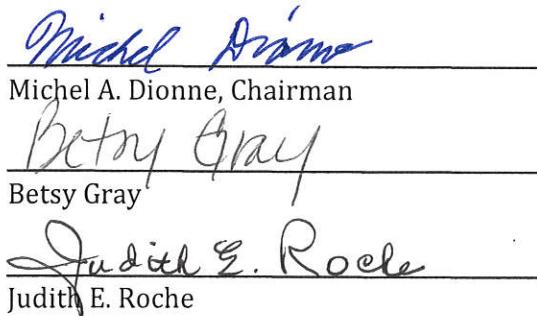 Michel Dionne
Michel A. Dionne, Chairman
Betsy Gray
Betsy Gray
Judith E. Roche
Judith E. Roche